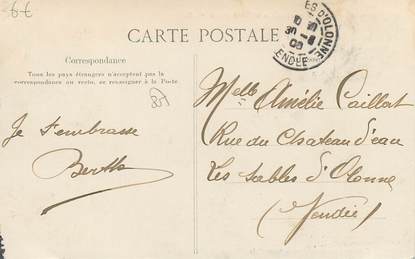 6€
CARTE POSTALE
ES D'OLONNE
30 -8
VENDÉE
Correspondance
Tous les pays étrangers n'acceptent pas la
correspondance au recto, se renseigner à la Poste.
85
Je t'embrasse
Berthe
Melle Amélie Caillat
Rue du Chateau d'eau
Les Sables d'Olonne
(Vendée)